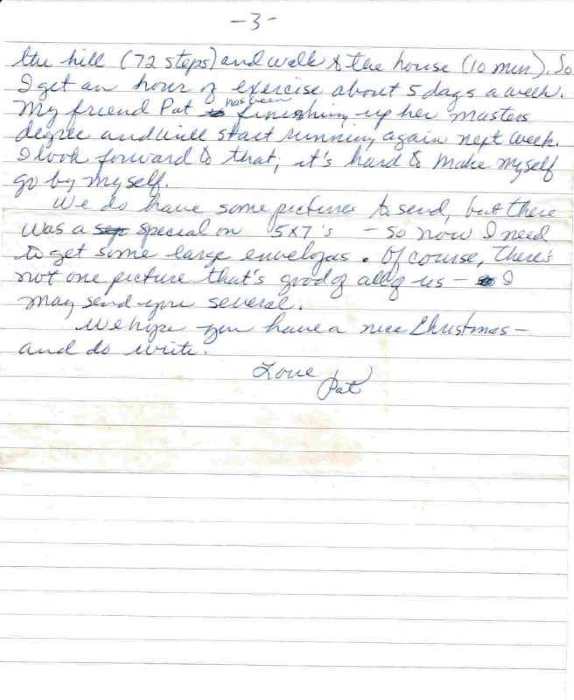 -3-
the hill (72 steps) and walk to the house (10 min). So
I get an hour of exercise about 5 days a week.
My friend Pat has been finishing up her masters
degree and will start running again next week.
I look forward to that, it's hard to make myself
go by myself.
We do have some pictures to send, but there
was a special on 5x7's - so now I need
to get some large envelopes. Of course, there's
not one picture that's good of all of us - I
may send you several.
We hope you have a nice Christmas -
and do write.
Love
Pat